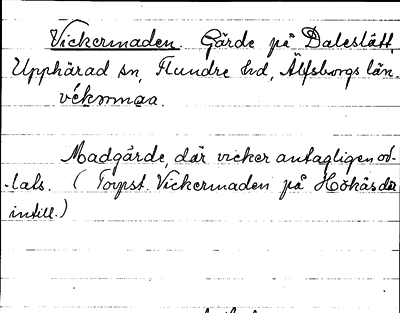 Vickermaden. Gärde på Daleslätt,
Upphärad sn, Flundre hd, Älfsborgs län.
Madgärde, där vicker antagligen od-
-lats. (Torpst. Vickermaden på Hökås där
intill.)